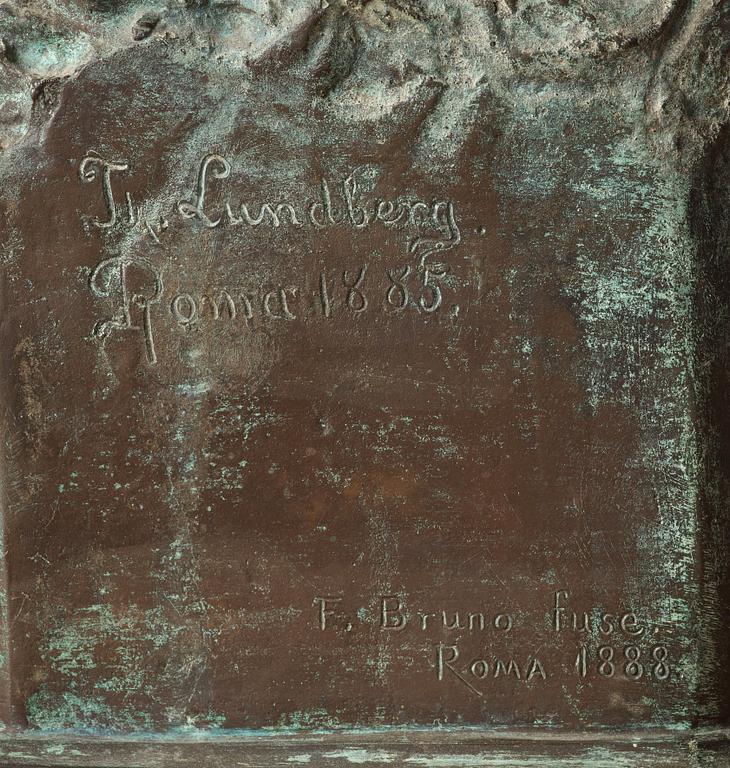 Th. Lundberg.
Roma 1885.
F. Bruno fuse.
ROMA 1888.